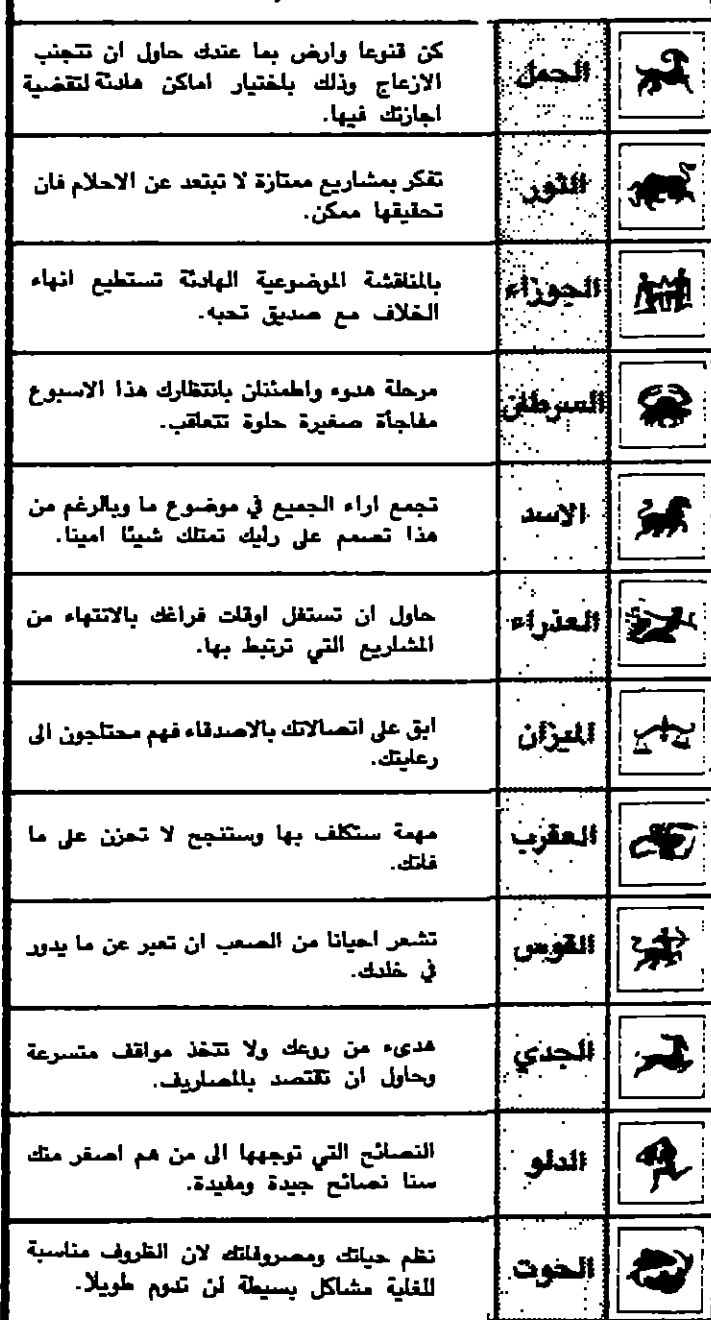 الحمل
كن قنوعا وارض بما عندك حاول ان تتجنب
الازعاج وذلك باختيار اماكن هادئة لتقضية
اجازتك فيها.
الثور
تفكر بمشاريع ممتازة لا تبتعد عن الاحلام فان
تحقيقها ممكن.
الجوزاء
بالمناقشة الموضوعية الهادئة تستطيع انهاء
الخلاف مع صديق تحبه.
السرطان
مرحلة هدوء واطمئنان بانتظارك هذا الاسبوع
مفاجأة صغيرة حلوة تتعاقب.
الاسد
تجمع اراء الجميع في موضوع ما وبالرغم من
هذا تصمم على رايك تمتلك شيئا امينا.
العذراء
حاول ان تستغل اوقات فراغك بالانتهاء من
المشاريع التي ترتبط بها.
الميزان
ابق على اتصالاتك بالاصدقاء فهم محتاجون الى
رعايتك.
العقرب
مهمة ستكلف بها وستنجح لا تحزن على ما
فاتك.
القوس
تشعر احيانا من الصعب ان تعبر عن ما يدور
في خلدك.
الجدي
هدىء من روعك ولا تتخذ مواقف متسرعة
وحاول ان تقتصد بالمصاريف.
الدلو
النصائح التي توجهها الى من هم اصغر منك
سنا نصائح جيدة ومفيدة.
الحوت
نظم حياتك ومصروفاتك لان الظروف مناسبة
للغاية مشاكل بسيطة لن تدوم طويلا.